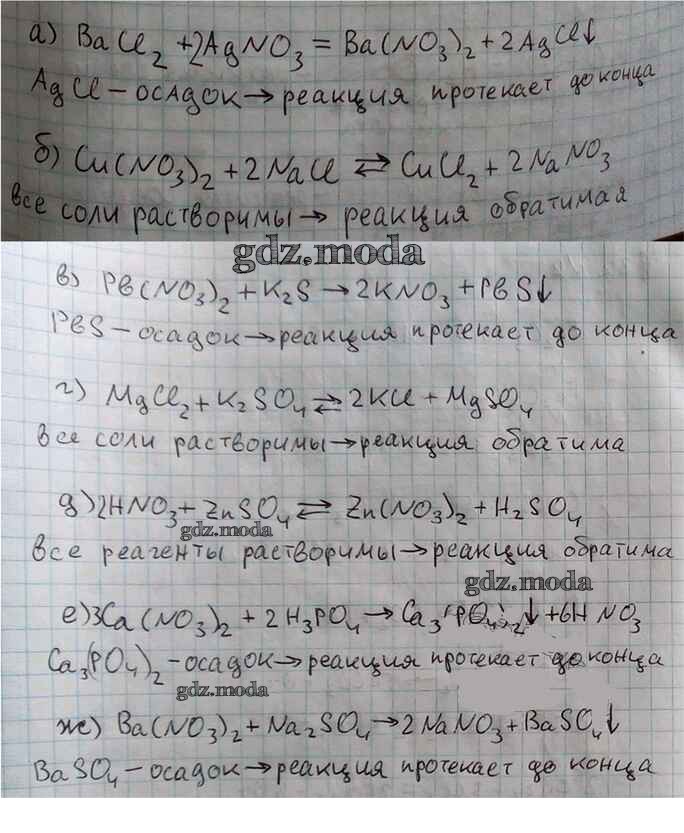 а) BaCl₂ + 2AgNO₃ = Ba(NO₃)₂ + 2AgCl↓
AgCl – осадок → реакция протекает до конца
б) Cu(NO₃)₂ + 2NaCl ⇄ CuCl₂ + 2NaNO₃
все соли растворимы → реакция обратимая
gdz.moda
в) Pb(NO₃)₂ + K₂S → 2KNO₃ + PbS↓
PbS – осадок → реакция протекает до конца
г) MgCl₂ + K₂SO₄ ⇄ 2KCl + MgSO₄
все соли растворимы → реакция обратима
д) 2HNO₃ + ZnSO₄ ⇄ Zn(NO₃)₂ + H₂SO₄
gdz.moda
все реагенты растворимы → реакция обратима
gdz.moda
е) 3Ca(NO₃)₂ + 2H₃PO₄ → Ca₃(PO₄)₂↓ + 6HNO₃
Ca₃(PO₄)₂ – осадок → реакция протекает до конца
gdz.moda
же) Ba(NO₃)₂ + Na₂SO₄ → 2NaNO₃ + BaSO₄↓
BaSO₄ – осадок → реакция протекает до конца